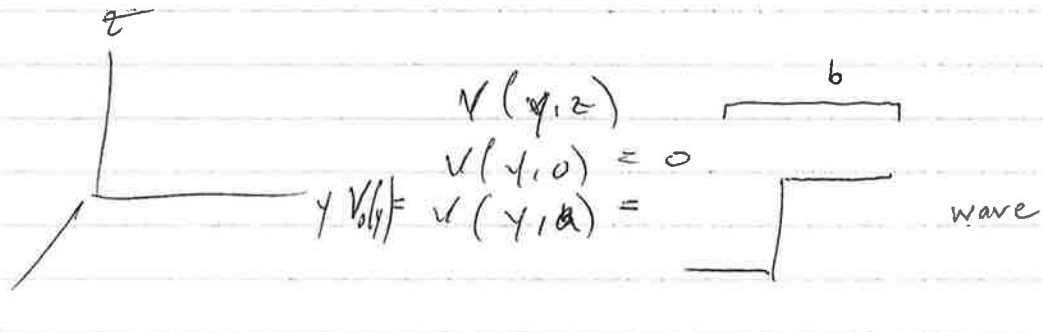 z
b
V(y,z)
V(y,0) = 0
y V₀(y) = V(y,a) =
wave